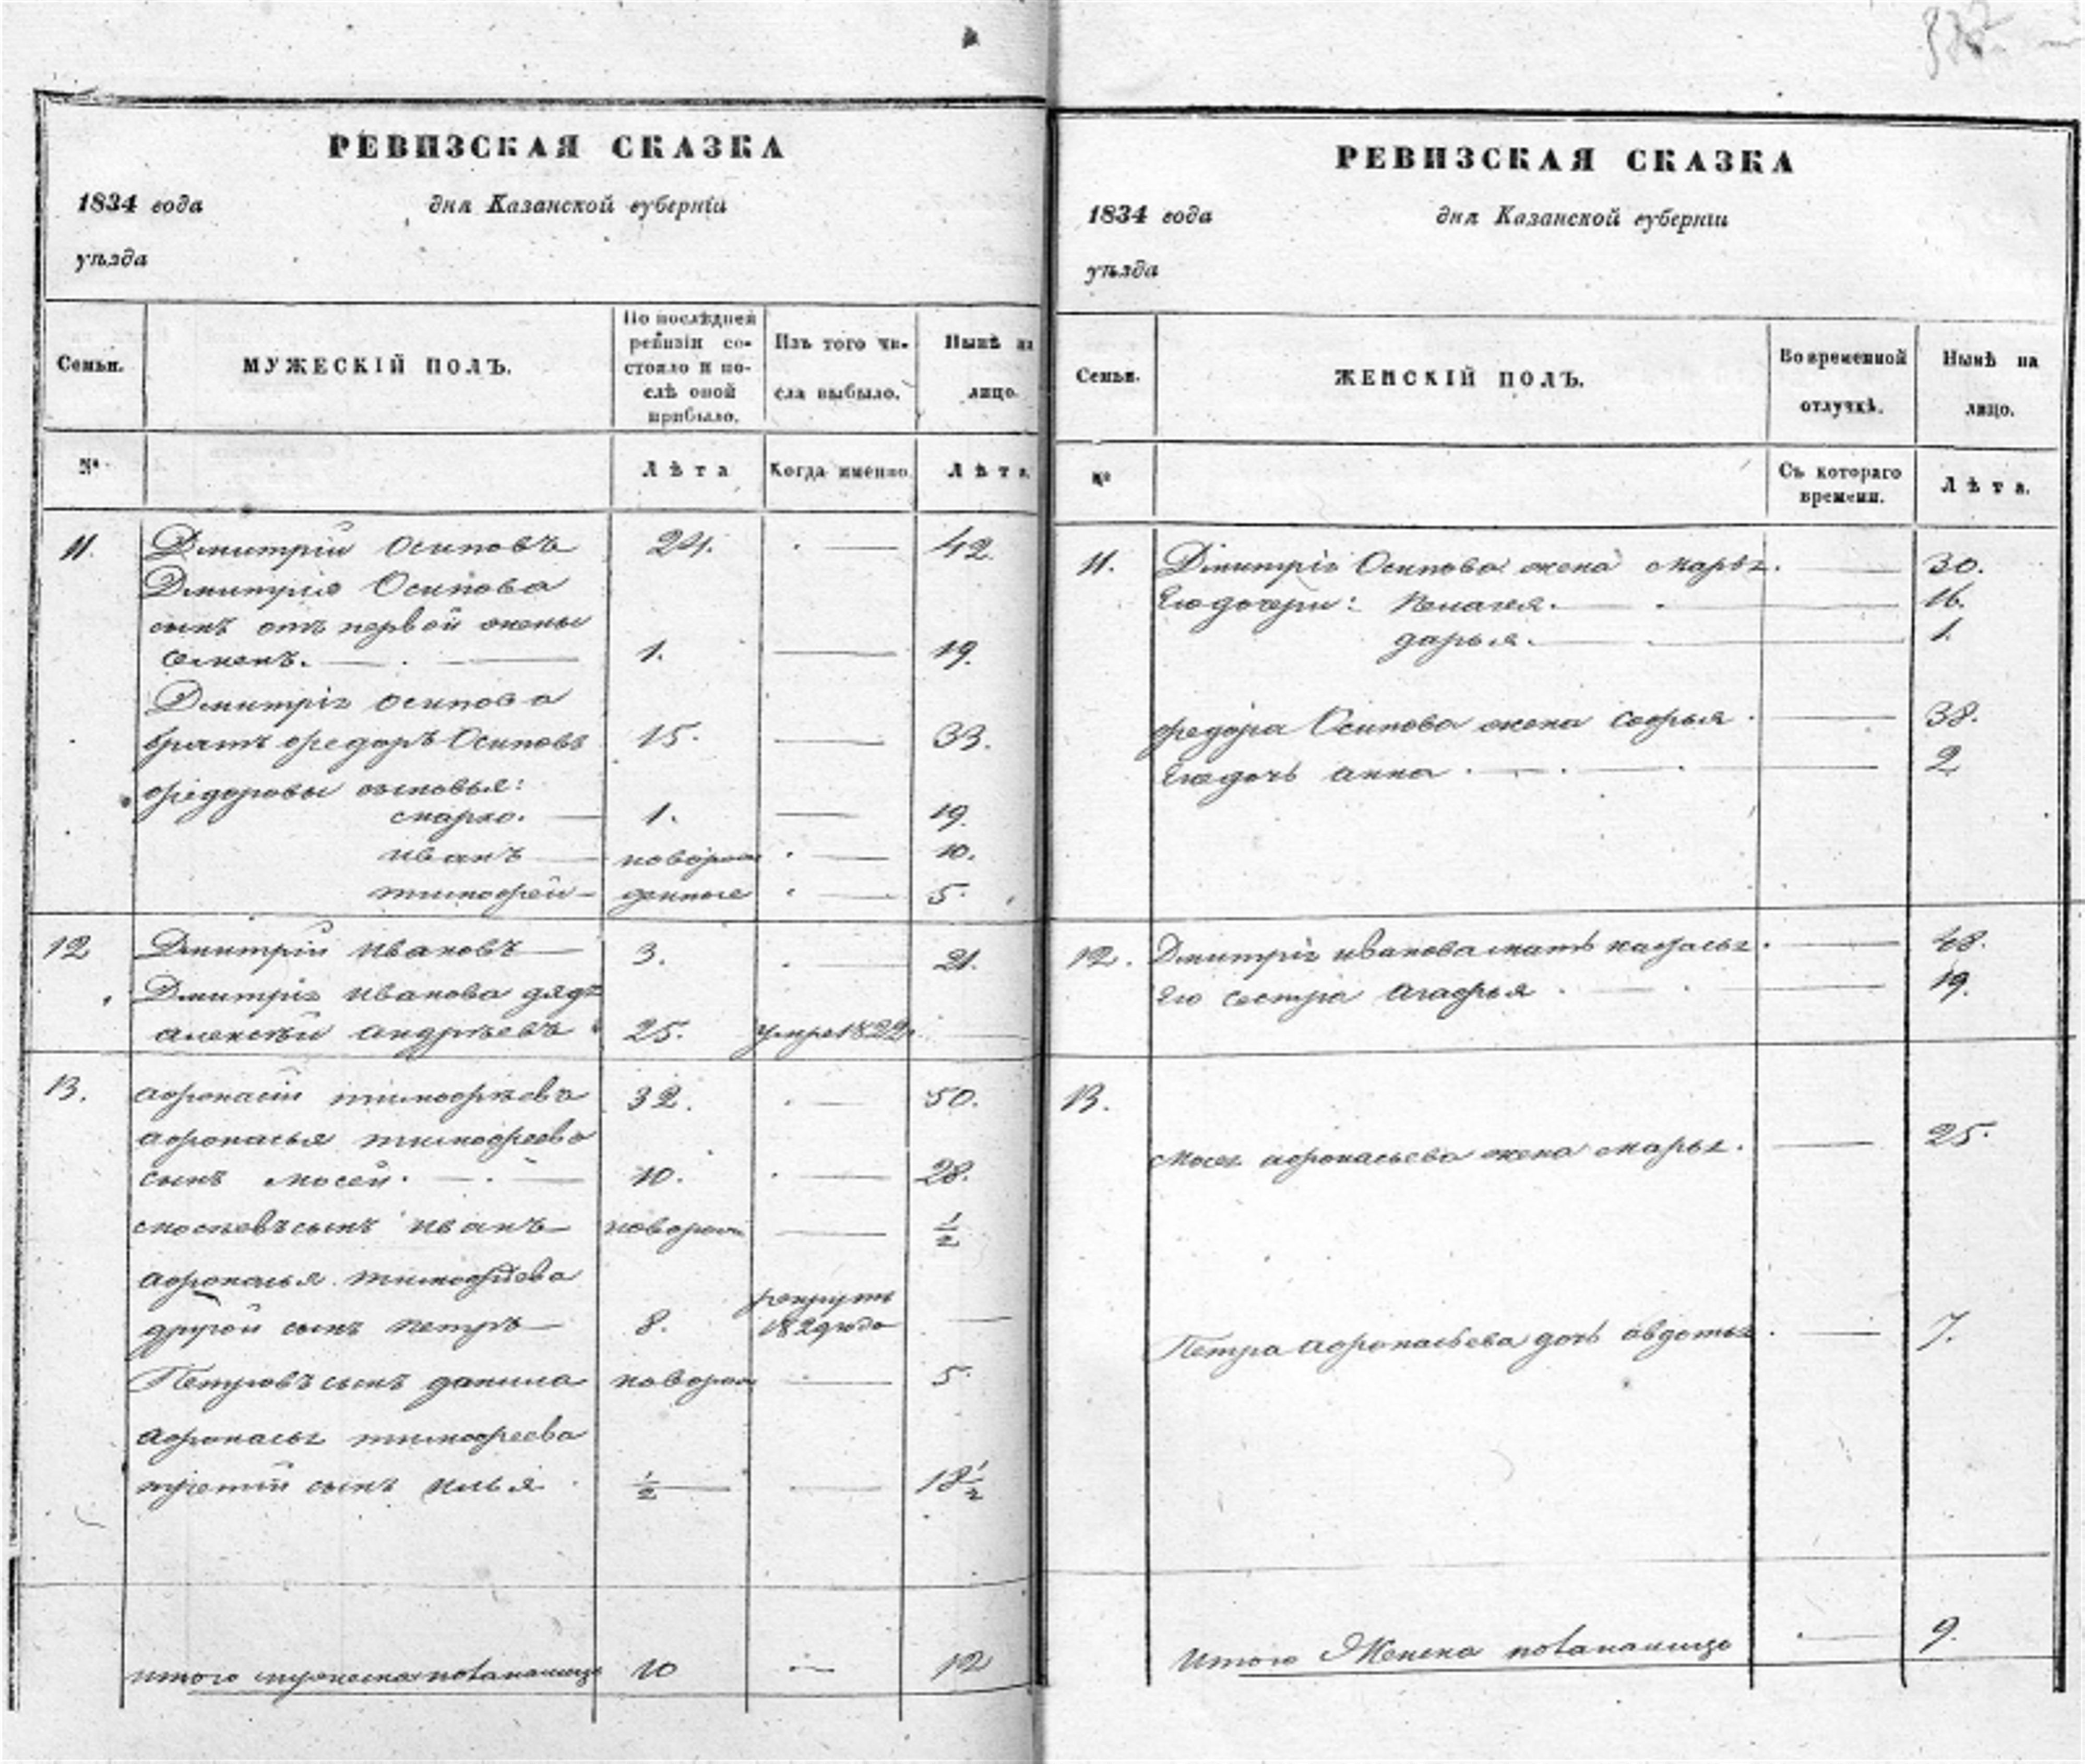 РЕВИЗСКАЯ СКАЗКА
1834 года дня Казанской губерніи
уѣзда
Семьи. МУЖЕСКІЙ ПОЛЪ. По послѣдней ревизіи состояло и послѣ оной прибыло. Изъ того числа выбыло. Нынѣ на лицо.
№ Лѣта Когда именно Лѣта
11. Дмитрій Осиповъ 24. 42.
Дмитрія Осипова
сынъ отъ первой жены
Семенъ. 1. 19.
Дмитрія Осипова
братъ Федоръ Осиповъ 15. 33.
Федоровы сыновья:
Марко. 1. 19.
Иванъ новорож 10.
Тимофей денные 5.
12 Дмитрій Ивановъ 3. 21.
Дмитрія Иванова дядя
Алексѣй Андрѣевъ 25. умре 1822.
13. Афонасій Тимофѣевъ 32. 50.
Афонасья Тимофеева
сынъ Мосей. 10. 28.
Мосѣевъ сынъ Иванъ новорож ½
Афонасья Тимофѣева рекрутъ
другой сынъ Петръ 8. 1829 года
Петровъ сынъ Данила новорож 5.
Афонасья Тимофеева
третій сынъ Илья ½ 18½
Итого мужеска пола налицо 10 12
РЕВИЗСКАЯ СКАЗКА
1834 года дня Казанской губерніи
уѣзда
Семьи. ЖЕНСКІЙ ПОЛЪ. Во временной отлучкѣ. Нынѣ на лицо.
№ Съ котораго времени. Лѣта.
11. Дмитрія Осипова жена Марья. 30.
Его дочери: Пелагея. 16.
Дарья. 1.
Федора Осипова жена Софья. 38.
Его дочь Анна. 2
12. Дмитрія Иванова мать Настасья. 48.
Его сестра Агафья. 19.
13.
Мосея Афонасьева жена Марья. 25.
Петра Афонасьева дочь Авдотья. 7.
Итого Женска пола налицо 9.